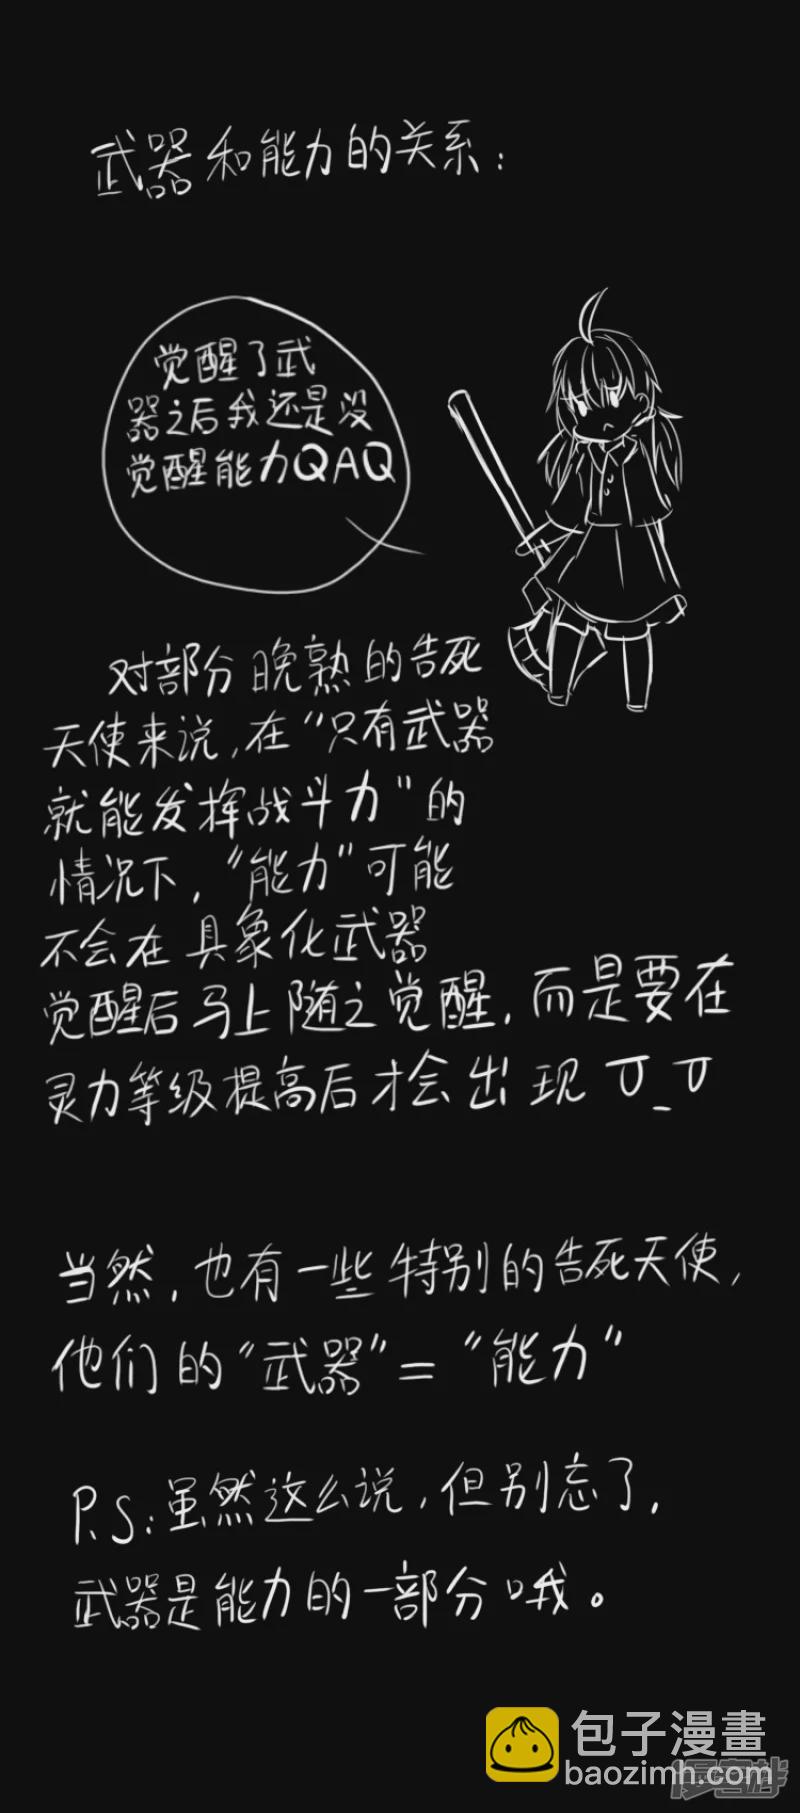 武器和能力的关系：
觉醒了武
器之后我还是没
觉醒能力QAQ
对部分晚熟的告死
天使来说，在“只有武器
就能发挥战斗力”的
情况下，“能力”可能
不会在具象化武器
觉醒后马上随之觉醒，而是要在
灵力等级提高后才会出现T_T
当然，也有一些特别的告死天使，
他们的“武器”=“能力”
P.S:虽然这么说，但别忘了，
武器是能力的一部分哦。
包子漫畫
baozimh.com
漫客栈